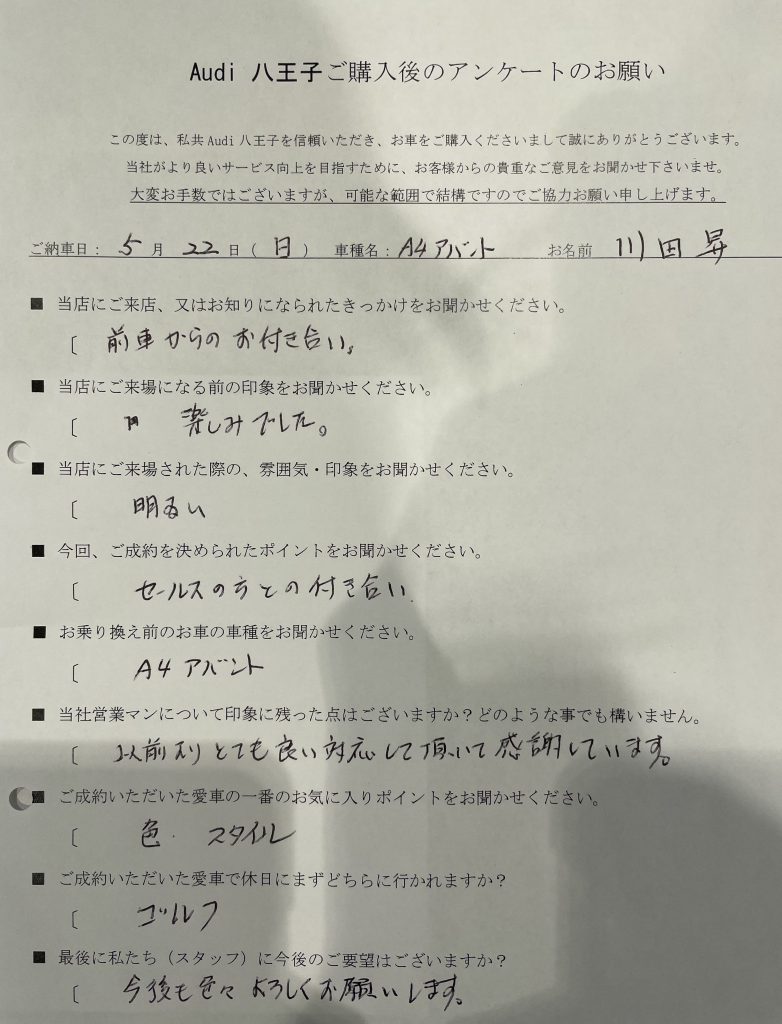 Audi 八王子ご購入後のアンケートのお願い
この度は、私共Audi八王子を信頼いただき、お車をご購入くださいまして誠にありがとうございます。
当社がより良いサービス向上を目指すために、お客様からの貴重なご意見をお聞かせ下さいませ。
大変お手数ではございますが、可能な範囲で結構ですのでご協力お願い申し上げます。
ご納車日: 5月 22日(日) 車種名: A4アバント お名前 川田昇
■ 当店にご来店、又はお知りになられたきっかけをお聞かせください。
〔 前車からのお付き合い。
■ 当店にご来場になる前の印象をお聞かせください。
〔 楽しみでした。
■ 当店にご来場された際の、雰囲気・印象をお聞かせください。
〔 明るい
■ 今回、ご成約を決められたポイントをお聞かせください。
〔 セールスの方との付き合い.
■ お乗り換え前のお車の車種をお聞かせください。
〔 A4 アバント
■ 当社営業マンについて印象に残った点はございますか?どのような事でも構いません。
〔 以前よりとても良い対応して頂いて感謝しています。
■ ご成約いただいた愛車の一番のお気に入りポイントをお聞かせください。
〔 色・スタイル
■ ご成約いただいた愛車で休日にまずどちらに行かれますか?
〔 ゴルフ
■ 最後に私たち(スタッフ)に今後のご要望はございますか?
〔 今後も色々よろしくお願いします。